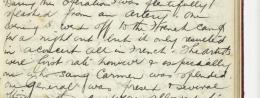 During the operation I was plentifully
splashed from an artery. One
evening I went off to the French Camp
for a night out but it only resulted
in a concert all in French. The artists
were first rate however & especially
one who sang Carmen was splendid
one General was present & several